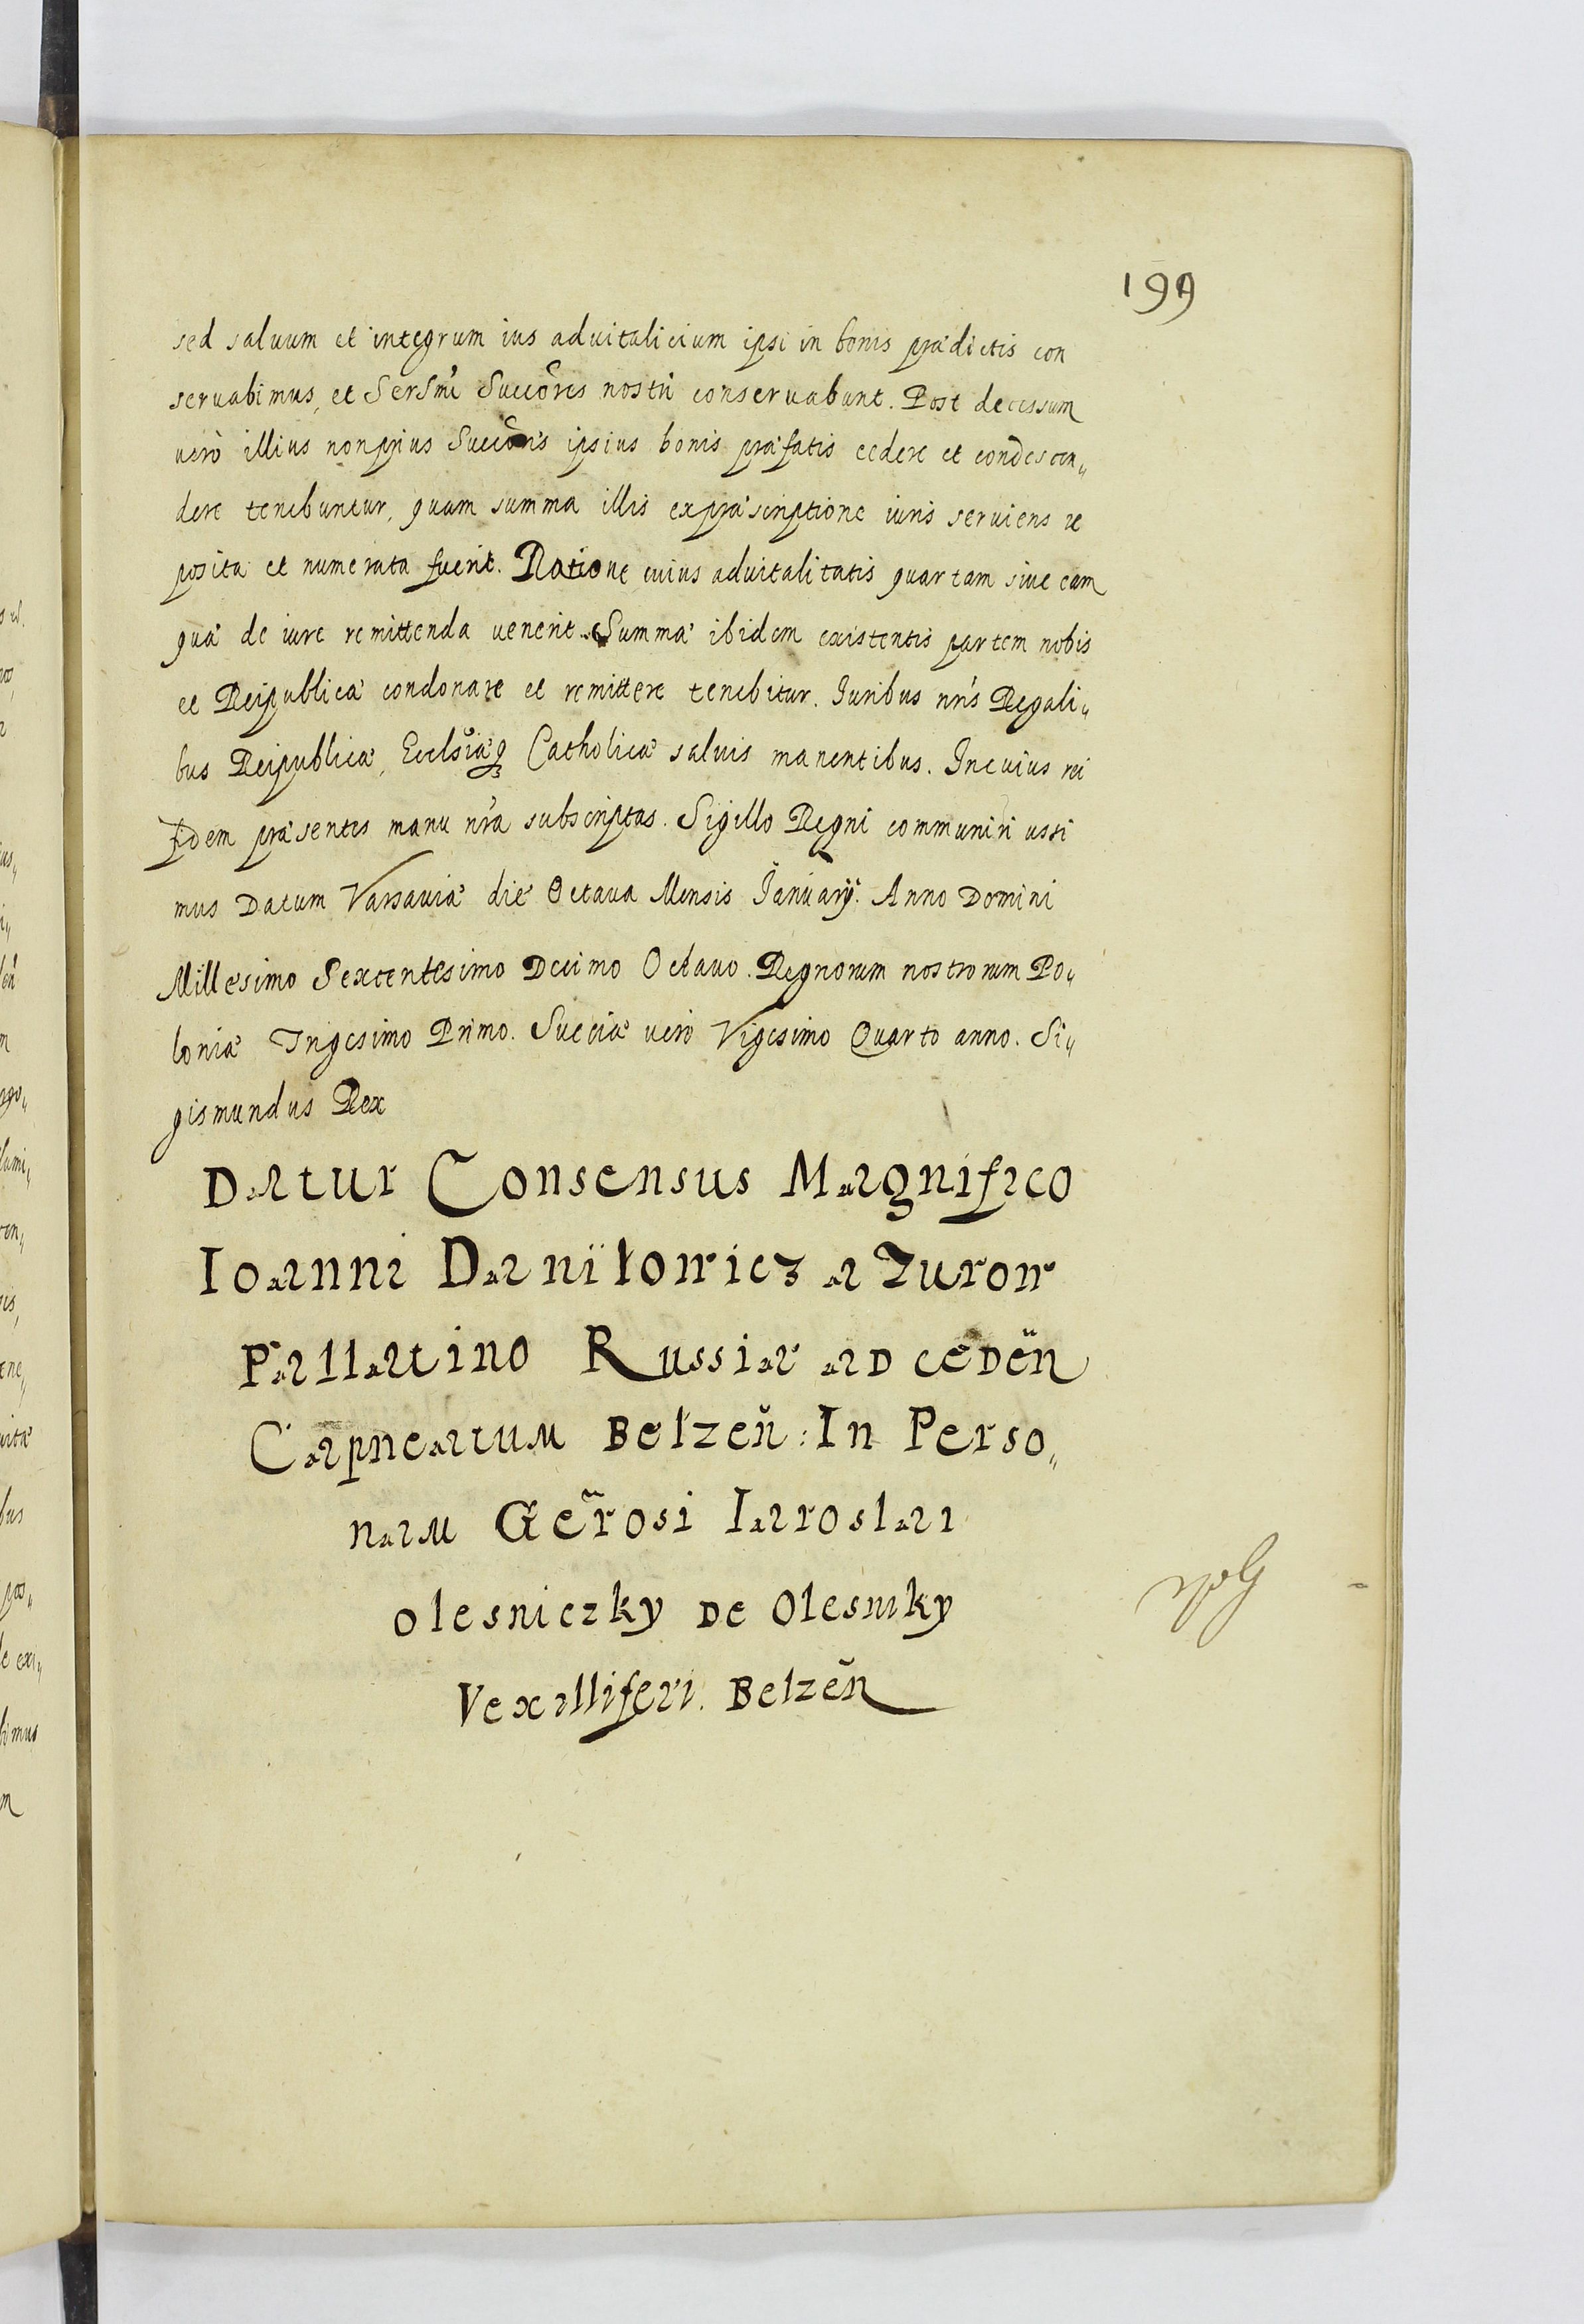 199
sed saluum et integrum ius aduitalicium ipsi in bonis prædictis con
seruabimus, et Sersmi Succōres nostri conseruabunt. Post decessum
verò illius non prius Succōris ipsius bonis præfatis cedere et condescen„
dere tenebuntur, quam summa illis ex præscriptione iuris seruiens re
posita et numerata fuerit. Ratione cuius aduitalitatis quartam siue eam
quæ de iure remittenda uenerit Summæ ibidem existentis partem nobis
et Reipublicæ condonare et remittere tenebitur. Iuribus nris Regali„
bus Reipublicæ, Ecclsiæq Catholicæ saluis manentibus. In cuius rei
fidem præsentes manu nra subscriptas. Sigillo Regni communiri iussi
mus Datum Varsauiæ die Octaua Mensis Ianuarij. Anno Domini
Millesimo Sexcentesimo Decimo Octauo. Regnorum nostrorum Po„
loniæ Trigesimo Primo. Sueciæ verò Vigesimo Quarto anno. Si„
gismundus Rex
Datur Consensus Magnifico
Ioanni Daniłowicz a Zurow
Pallatino Russiæ ad cedeñ
Capneatum Bełzeñ: In Perso„
nam Gērosi Iaroslai
Olesniczky De Olesniky
Vexilliferi. Belzeñ